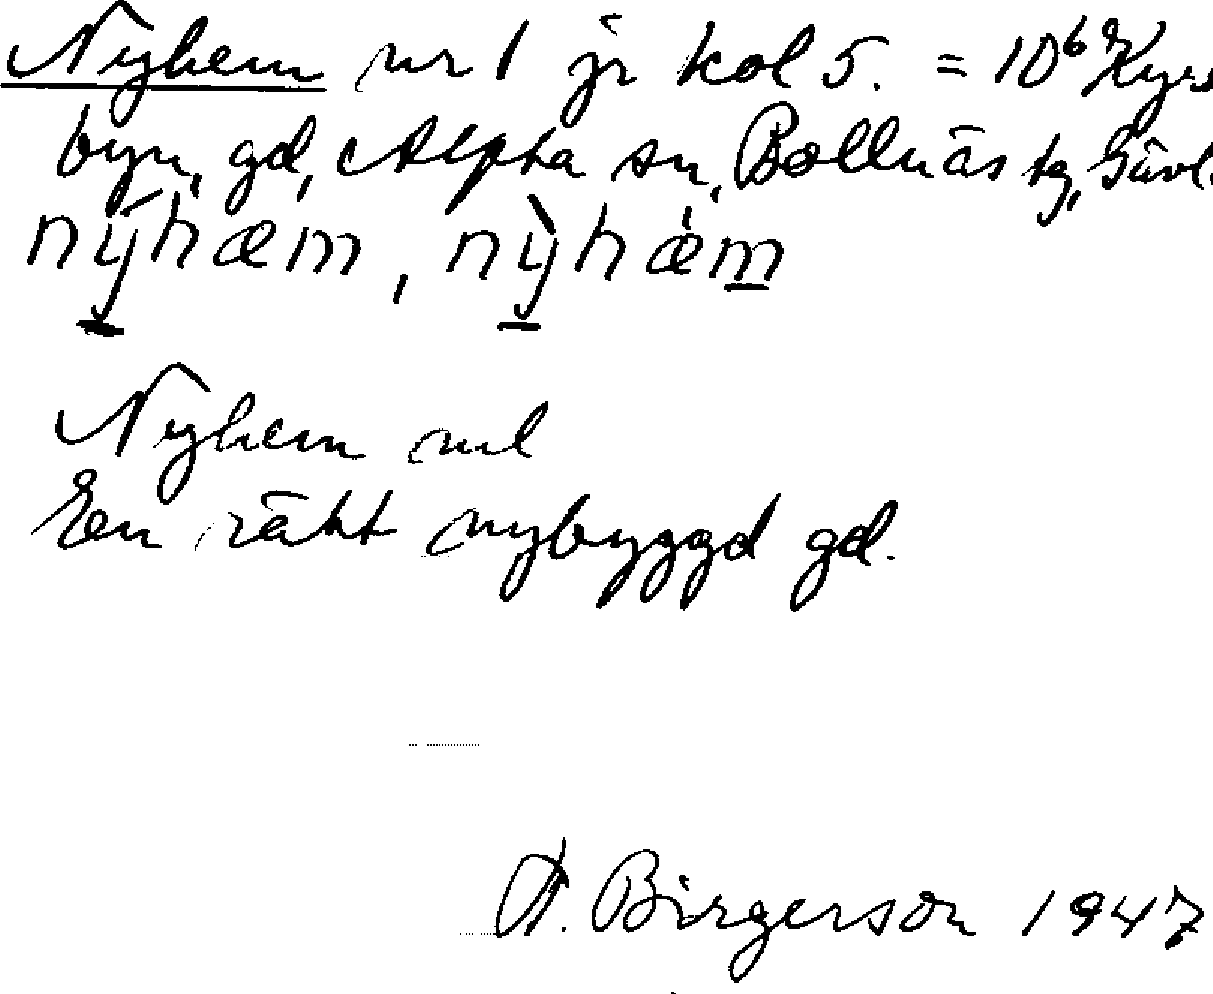 Nyhem nr 1 jr kol 5. = 10⁶ Kyrk
byn, gd, Alfta sn, Bollnäs tg, Gävl.
nȳhæm, nỳhæ̀m
Nyhem nrl
En rätt nybyggd gd.
A. Birgerson 1947